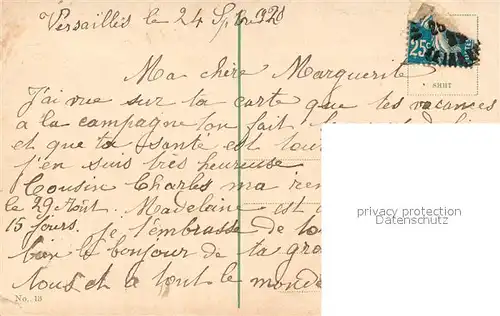 Versailles le 24 Sp.bre 1920
25c
SHHT
Ma chère Marguerite
J'ai vue sur ta carte que les vacances
a la campagne ton fait
et que ta santé est tou
j'en suis très heureuse
Cousin Charles ma ren
le 29 Août. Madeleine est
15 jours. je t'embrasse de to
bien le bonjour de ta gra
tous et a tout le monde
No. 13
privacy protection
oldthing.de/datenschutz